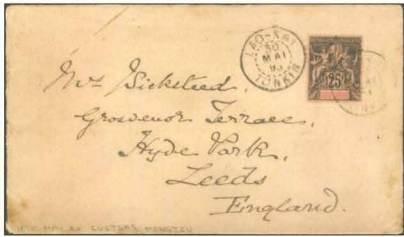 LAO-KAI
30
MAI
TONKIN
25
Mrs Bicksteed,
Grosvenor Terrace,
Hyde Park,
Leeds
England.
MAY ex CUSTOMS MENGTZU